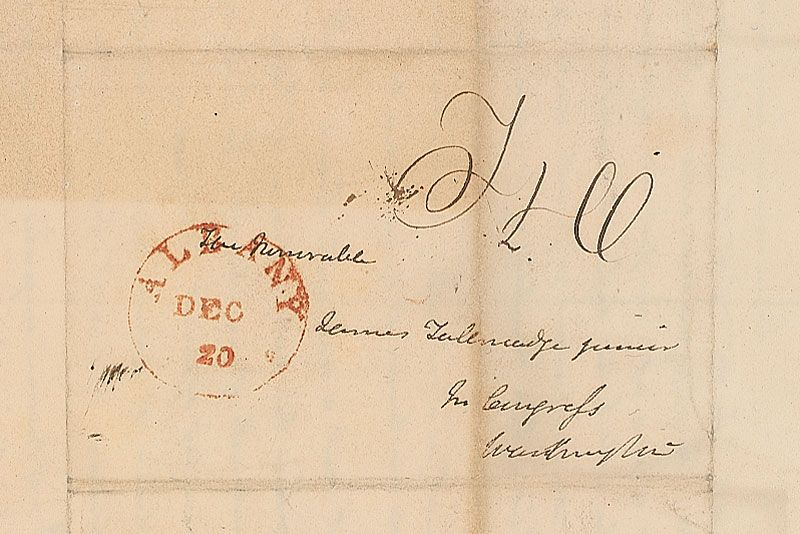 ALBANY
DEC
20
The honorable
James Tallmadge junior
In Congress
Washington